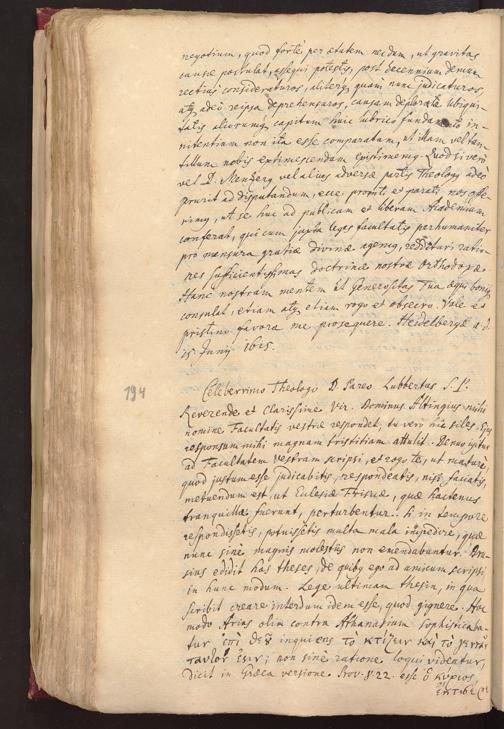 negotium, quod fortè per ætatem nedum, ut gravitas
causæ postulat, assequi potestis, post decennium demum
rectius consideraturos, aliterq; quam nunc judicaturos,
atq; adeò reipsa deprehensuros, causam deploratæ ubiqui-
tatis aliorumq; capitum huic lubrico fundamento in-
nitentium non ita esse comparatam, ut illam vel tan-
tillum nobis extimescendam existimemus. Quod si verò
vel D. Mentzerus vel alius adversæ partis Theologus adeò
pruriat ad disputandum, ecce promti et parati nos offe-
rimus, ut se huc ad publicam et liberam Academiam
conferat, qui cum juxta leges facultatis perhumaniter
pro mensura gratiæ divinæ agemus, reddeturq; ratio-
nes sufficientissimas doctrinæ nostræ Orthodoxæ
Hanc nostram mentem ut Generositas Tua æqui boniq;
consulat, etiam atq; etiam rogo et obsecro. Vale et
pristino favore me prosequere. Heidelbergæ a. d.
15. Junij 1615.
194
Celeberrimo Theologo D. Pareo. Lubbertus S. P.
Reverende et Clarissime Vir. Dominus Altingius mihi
nomine Facultatis vestræ respondet, tu verò hic siles. Ejus
responsum mihi magnam tristitiam attulit. Denuò igitur
ad Facultatem vestram scripsi, et rogo te, ut maturè,
quod justum esse judicabitis, respondeatis, nisi faciatis,
metuendum est, ut Ecclesiæ Frisicæ, quæ hactenus
tranquillæ fuerunt, perturbentur. Si in tempore
respondissetis, potuissetis multa mala impedire, quæ
nunc sine magnis molestiis non emendabuntur.
sius edidit has theses, de quibus ego ad amicum scripsi,
in hunc modum. Lege ultimam thesin, in qua
scribit creare interdum idem esse, quod gignere. Hoc
modo Arius olim contra Athanasium sophisticaba-
tur ἐπὶ θεοῦ inquiens τὸ κτίζειν καὶ τὸ γεννᾶν
ταυτόν ἐστιν; non sine ratione loqui videntur,
dicit in Græca versione Prov. 8. 22. esse ὁ κύριος
ἔκτισέ με